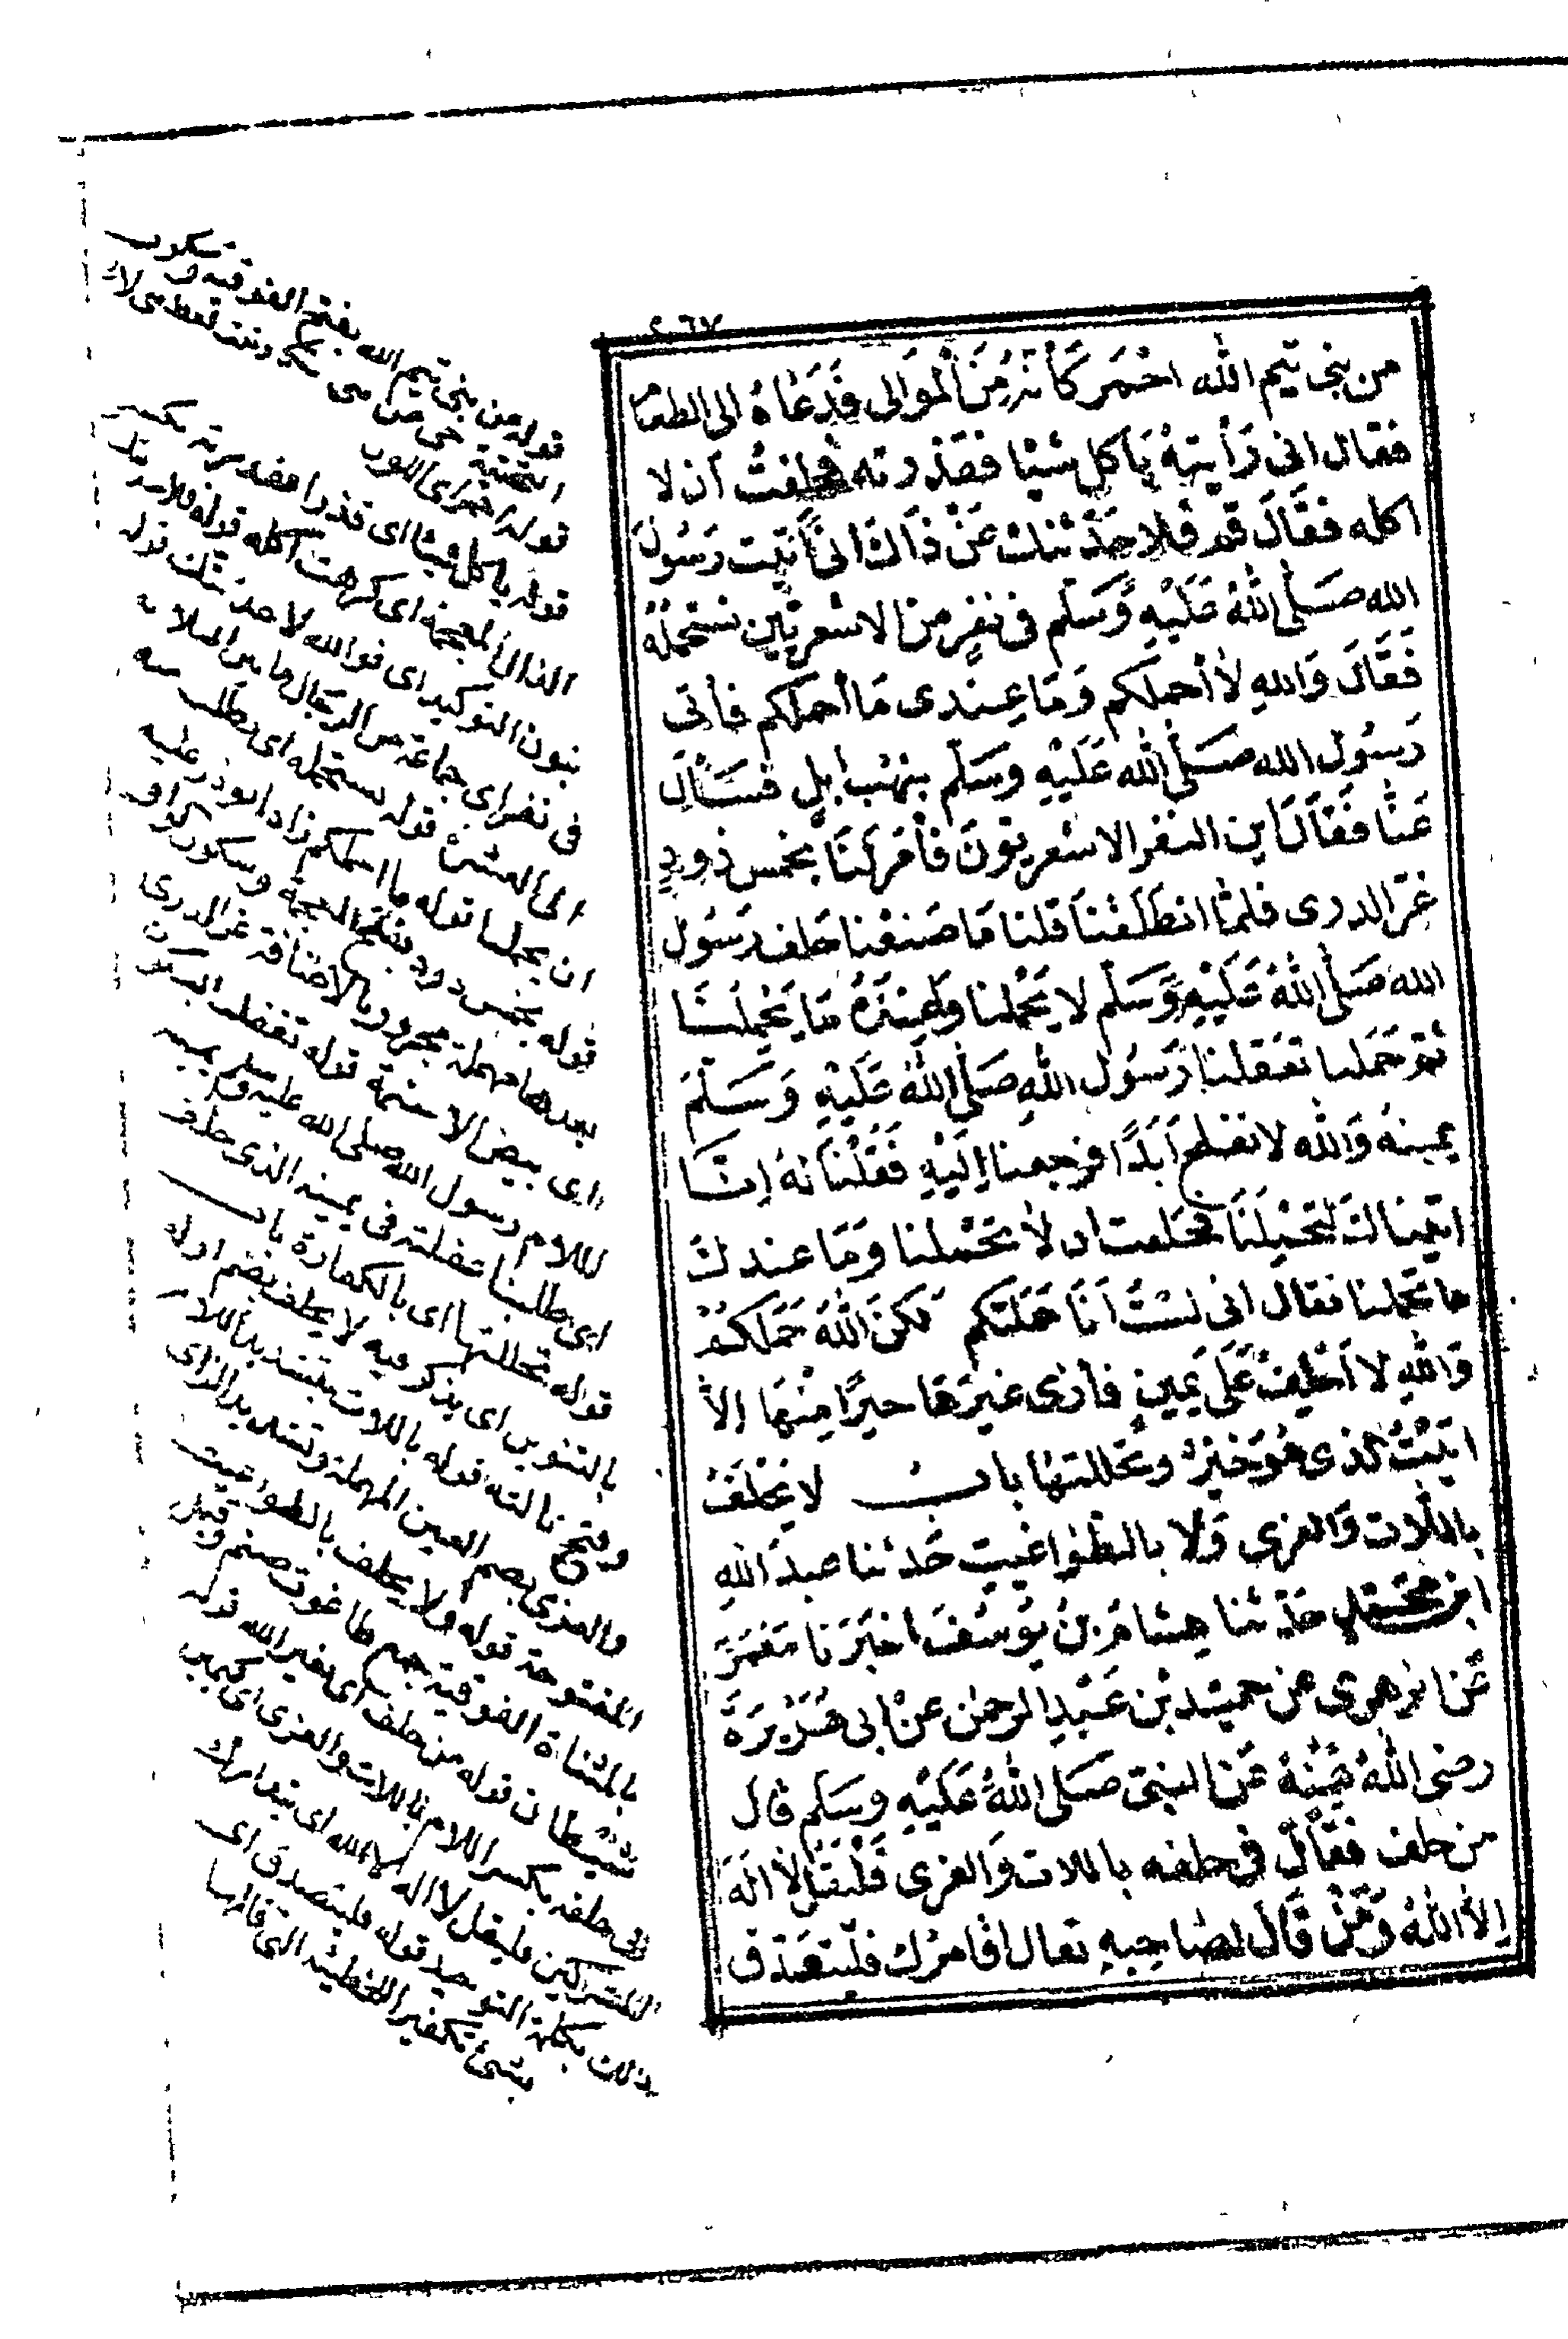 ٢٠٦٧
من بنى تيم الله احمر كَأنه مِنَ المَوالى فَدَعَاهُ الى الطعام
فقال انى رَأيتهُ يَأكل شيئا فقذرته فحلِفتُ ان لا
اكله فقَالَ قم فلاحَدّثنك عَنْ ذَاكَ انى أتيت رَسُول
الله صَلى اللهُ عَلَيْهِ وَسَلم فى نفرٍ من الاشعريّين نستحمله
فَقَالَ وَاللهِ لا أحملكم وَمَا عِندى مَا أحملكم فأتى
رَسُول الله صَلى الله عَلَيْهِ وسَلم بنهْب ابلٍ فسَأل
عَنّا فقَالَ اين النفر الاشعريّونَ فأمَرلَنَا بخمس ذودٍ
غرّ الدرى فلمّا انطلَقنَا قلنا مَا صَنعْنا حَلف رَسُول
الله صَلى اللهُ عَلَيْهِ وَسَلم لا يَحْملنا وَمَا عِنْدَهُ مَا يَحْمِلنَا
ثم حَملنا تغَفلنا رَسُول اللهِ صَلى اللهُ عَلَيْهِ وَسَلَم
يمينهُ وَالله لا نفلح اَبَدًا فرجعنا اِليْهِ فَقُلْنَا لهُ اِنّا
اتيناك لتَحْمِلَنَا فحَلفت ان لا تحْملنا وَمَا عندك
ما تحملنا فقال انى لسْتُ اَنَا حَمَلتكم وَلكنّ اللهَ حَمَلكُمْ
وَاللهِ لا اَحْلِفُ عَلَى يَمينٍ فأرَى غيرَها خيرًا مِنْهَا اِلاّ
اتَيْتُ الذى هُوَ خَيْرٌ وتحَللتهَا باب لا يُحْلَفُ
باللّات وَالعزى وَلا بالطوَاغيتِ حَدثنا عبدُ اللهِ
ابن محمّد حَدّثنا هِشامُ بنُ يُوسُفَ اخبَرَنا مَعْمَرٌ
عَن الزهرى عن حميْد بْن عَبْدِ الرحمن عنْ ابى هُرَيْرَةَ
رضى اللهُ عَنْهُ عَن النبىّ صَلى اللهُ عَلَيْهِ وسَلم قال
من حلف فقَالَ فى حلفه باللات وَالعزى فَلْيَقُلْ لا الهَ
اِلا اللهُ وَمَنْ قَالَ لصَاحِبِهِ تعال اقامرْك فلْيتصَدّق
قوله من بنى تيم الله بفتح الفوقية وسكون
التحتية حى من
قوله احمر اى اللون
قوله ياكل شيئا اى قذرا فقذرته بكسر
الذال المعجمة اى كرهت اكله قوله فلاحدثنك
بنون التوكيد اى فوالله لاحدثنك قوله
فى نفر اى جماعة من الرجال ما بين الثلاثة
الى العشرة قوله نستحمله اى نطلب منه
ان يحملنا قوله ما احملكم زاد ابوذر عليه
قوله بخمس ذود بفتح المعجمة وسكون الواو
بعدها مهملة مجرور بالاضافة غر الدرى
اى بيض الاسنمة قوله تغفلنا بسكون
اللام رسول الله صلى الله عليه وسلم يمينه
اى طلبنا غفلته فى يمينه الذى حلف
قوله تحللتها اى بالكفارة باب
بالتنوين اى يذكر فيه لا يحلف بضم اوله
وفتح ثالثه قوله باللات بتشديد اللام
والعزى بضم العين المهملة وتشديد الزاى
المفتوحة قوله ولا يحلف بالطواغيت
بالمثناة الفوقية جمع طاغوت صنم وقيل
شيطان قوله من حلف اى بغير الله قوله
فى حلفه بكسر اللام باللات والعزى اى كيمين
المشركين فليقل لا اله الا الله اى
ذلك بكلمة التوحيد قوله فليتصدق اى
بشئ تكفير الخطيئة التى قالها